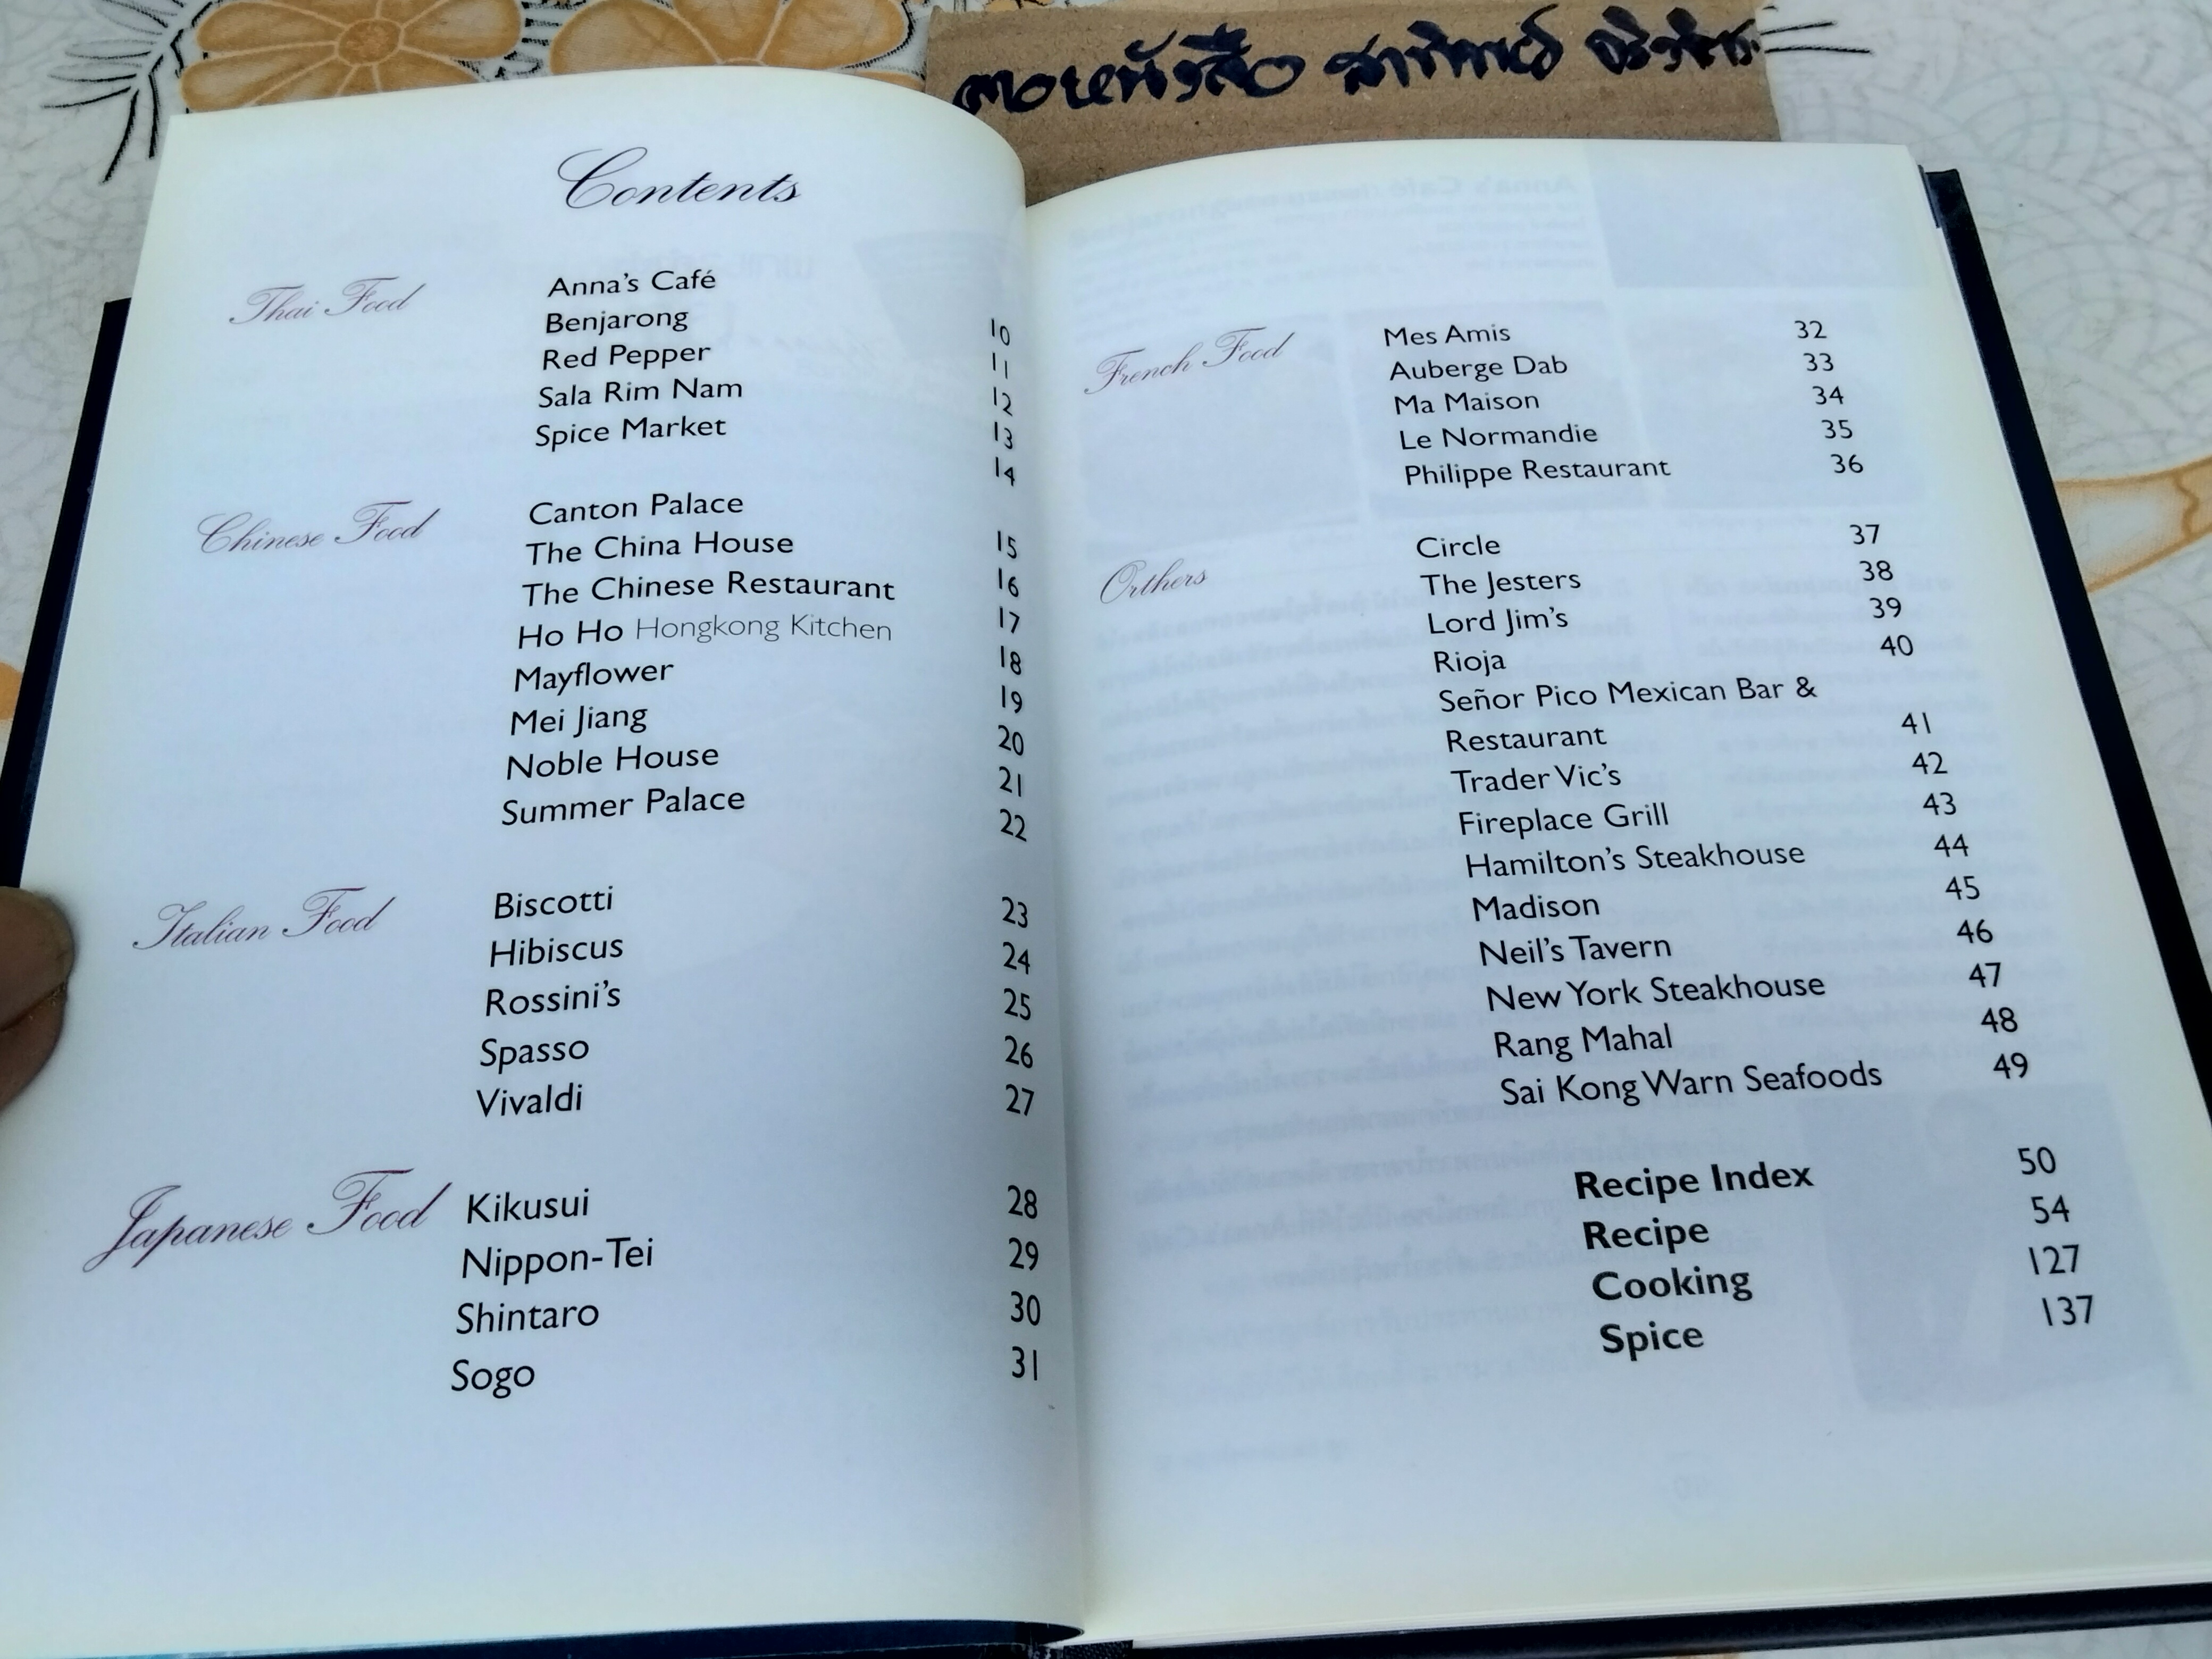 ตอหนังสือ สาทิพย์ จิรวัชระ
Contents
Thai Food
Anna's Café 10
Benjarong 11
Red Pepper 12
Sala Rim Nam 13
Spice Market 14
Chinese Food
Canton Palace 15
The China House 16
The Chinese Restaurant 17
Ho Ho Hongkong Kitchen 18
Mayflower 19
Mei Jiang 20
Noble House 21
Summer Palace 22
Italian Food
Biscotti 23
Hibiscus 24
Rossini's 25
Spasso 26
Vivaldi 27
Japanese Food
Kikusui 28
Nippon-Tei 29
Shintaro 30
Sogo 31
French Food
Mes Amis 32
Auberge Dab 33
Ma Maison 34
Le Normandie 35
Philippe Restaurant 36
Orthers
Circle 37
The Jesters 38
Lord Jim's 39
Rioja 40
Señor Pico Mexican Bar &
Restaurant 41
Trader Vic's 42
Fireplace Grill 43
Hamilton's Steakhouse 44
Madison 45
Neil's Tavern 46
New York Steakhouse 47
Rang Mahal 48
Sai Kong Warn Seafoods 49
Recipe Index 50
Recipe 54
Cooking 127
Spice 137